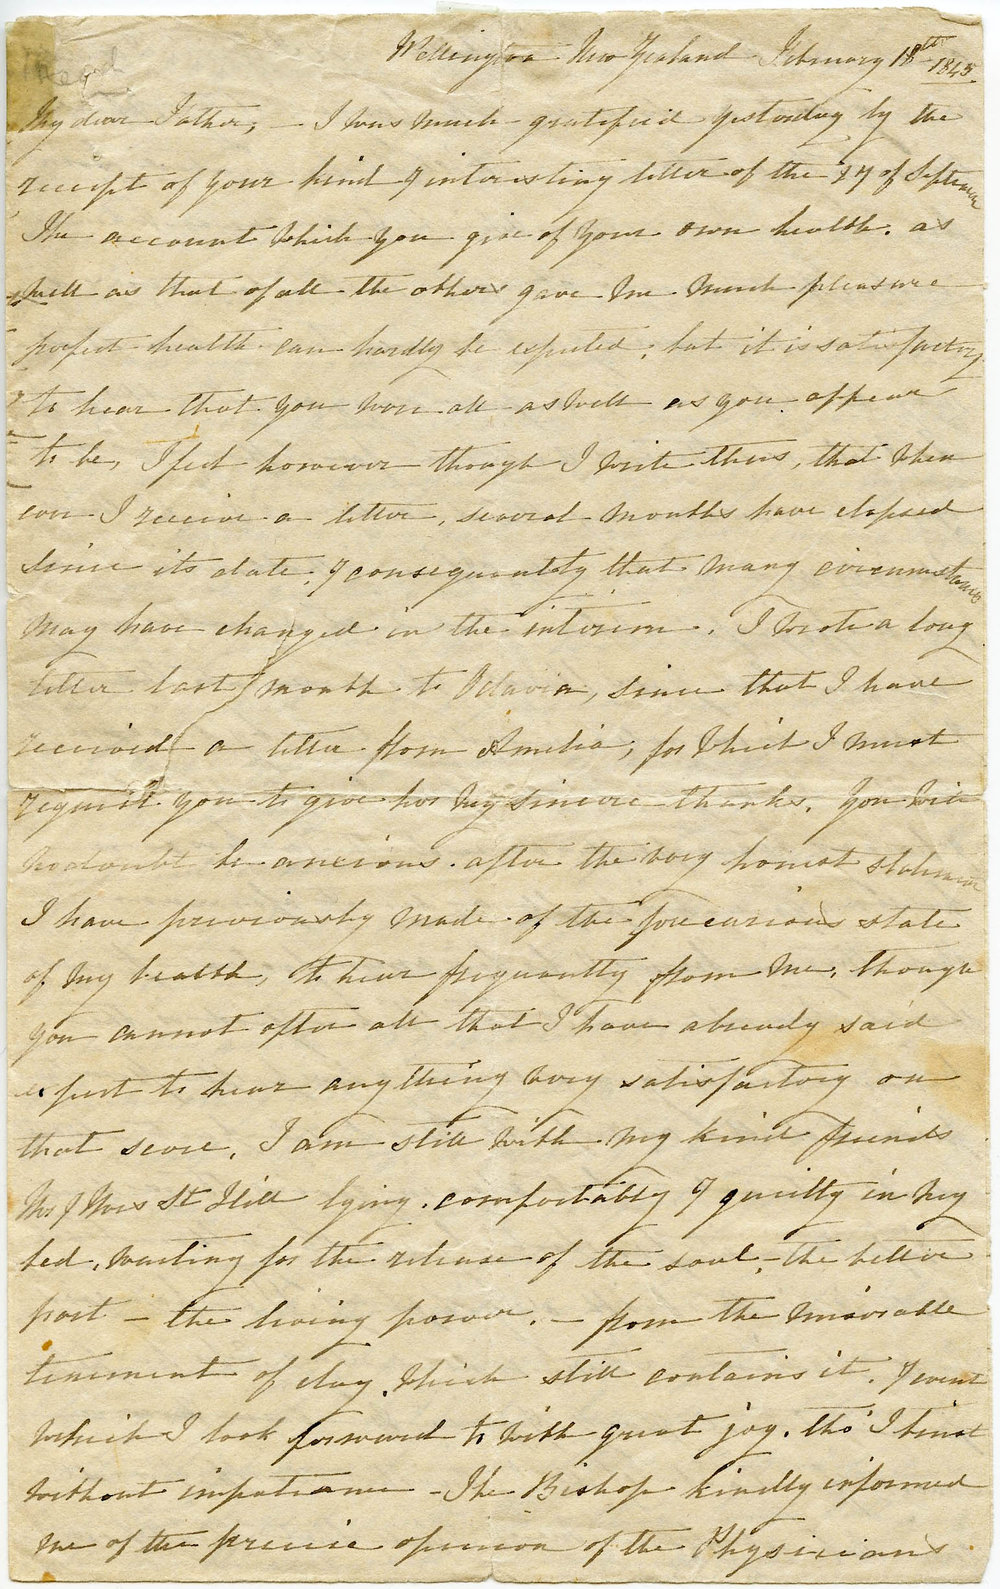 Wellington New Zealand February 18th 1845.
My dear Father, — I was much gratified yesterday by the
receipt of your kind & interesting letter of the 17 of September
The account which you give of your own health. as
well as that of all the others gave me much pleasure
perfect health can hardly be expected, but it is satisfactory
to hear that you were all as well as you appear
to be, I feel however though I write thus, that when
ever I receive a letter, several months have elapsed
since its date, & consequently that many circumstances
may have changed in the interim. I wrote a long
letter last month to Octavia, since that I have
received a letter from Amelia, for which I must
request you to give her my sincere thanks. You will
no doubt be anxious. after the very honest statement
I have previously made of the precarious state
of my health, to hear frequently from me, though
you cannot after all that I have already said
expect to hear anything very satisfactory on
that score. I am still with my kind friends
Mr & Mrs St Hill lying. comfortably & quietly in my
bed, waiting for the release of the soul, the better
part — the living power. — from the miserable
tenement of clay, which still contains it. & event
which I look forward to with great joy. tho' I trust
without impatience — The Bishop kindly informed
me of the precise opinion of the Physicians